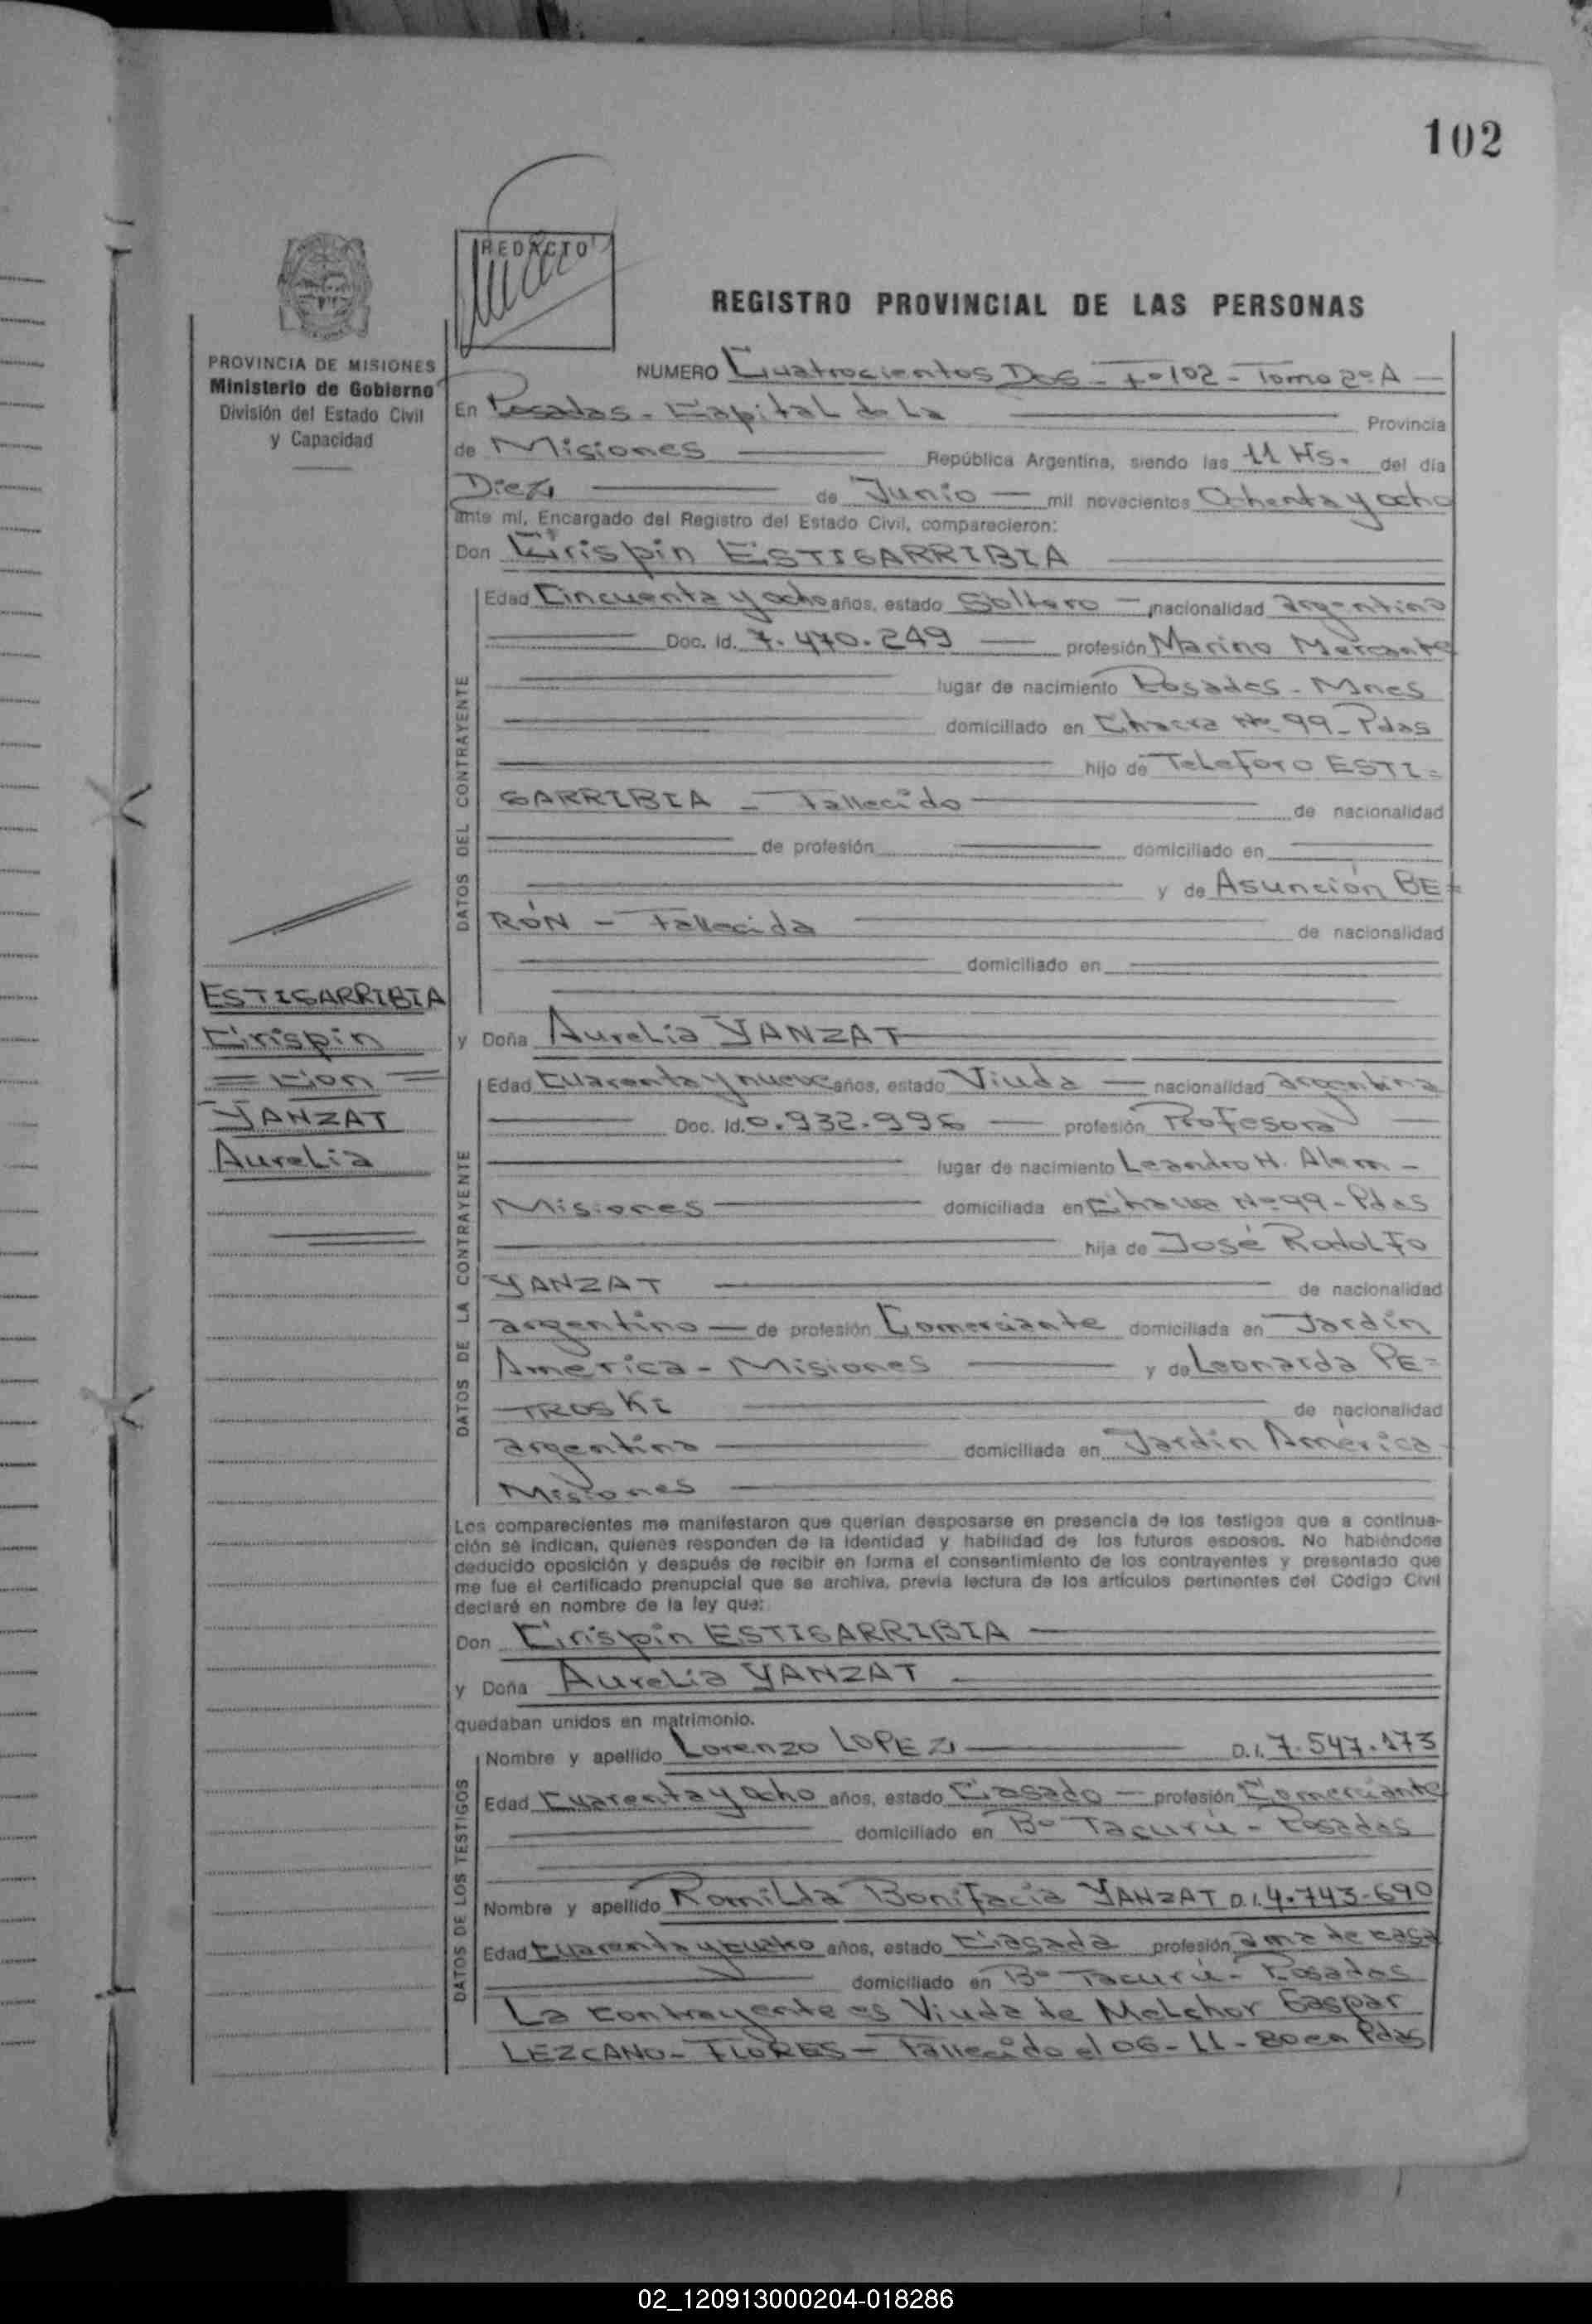 102
REDACTO
REGISTRO PROVINCIAL DE LAS PERSONAS
PROVINCIA DE MISIONES
Ministerio de Gobierno
División del Estado Civil
y Capacidad
NUMERO Cuatrocientos Dos - Fº 102 - Tomo 2º A
En Posadas - Capital de La Provincia
de Misiones República Argentina, siendo las 11 Hs. del día
Diez de Junio mil novecientos Ochenta y ocho
ante mí, Encargado del Registro del Estado Civil, comparecieron:
Don Crispin ESTIGARRIBIA
DATOS DEL CONTRAYENTE
Edad Cincuenta y ocho años, estado Soltero nacionalidad argentino
Doc. Id. 7.470.249 profesión Marino Mercante
lugar de nacimiento Posadas - Mnes
domiciliado en Chacra Nº 99 - Pdas
hijo de Teleforo ESTI=
GARRIBIA - Fallecido de nacionalidad
de profesión domiciliado en
y de Asunción BE=
RÓN - Fallecida de nacionalidad
domiciliado en
ESTIGARRIBIA
Crispin
= Con =
YANZAT
Aurelia
y Doña Aurelia YANZAT
DATOS DE LA CONTRAYENTE
Edad Cuarenta y nueve años, estado Viuda nacionalidad argentina
Doc. Id. 0.932.996 profesión Profesora
lugar de nacimiento Leandro H. Alem -
Misiones domiciliada en Chacra Nº 99 - Pdas
hija de José Rodolfo
YANZAT de nacionalidad
argentino de profesión Comerciante domiciliada en Jardín
América - Misiones y de Leonarda PE=
TROSKI de nacionalidad
argentina domiciliada en Jardín América
Misiones
Los comparecientes me manifestaron que querían desposarse en presencia de los testigos que a continua-
ción se indican, quienes responden de la identidad y habilidad de los futuros esposos. No habiéndose
deducido oposición y después de recibir en forma el consentimiento de los contrayentes y presentado que
me fue el certificado prenupcial que se archiva, previa lectura de los artículos pertinentes del Código Civil
declaré en nombre de la ley que:
Don Crispin ESTIGARRIBIA
y Doña Aurelia YANZAT
quedaban unidos en matrimonio.
DATOS DE LOS TESTIGOS
Nombre y apellido Lorenzo LOPEZ D.I. 7.547.173
Edad Cuarenta y Ocho años, estado Casado profesión Comerciante
domiciliado en Bº Tacurú - Posadas
Nombre y apellido Romilda Bonifacia YANZAT D.I. 4.743.690
Edad Cuarenta y cuatro años, estado Casada profesión ama de casa
domiciliado en Bº Tacurú - Posadas
La contrayente es Viuda de Melchor Gaspar
LEZCANO - FLORES - Fallecido el 06-11-80 en Pdas
02_120913000204-018286